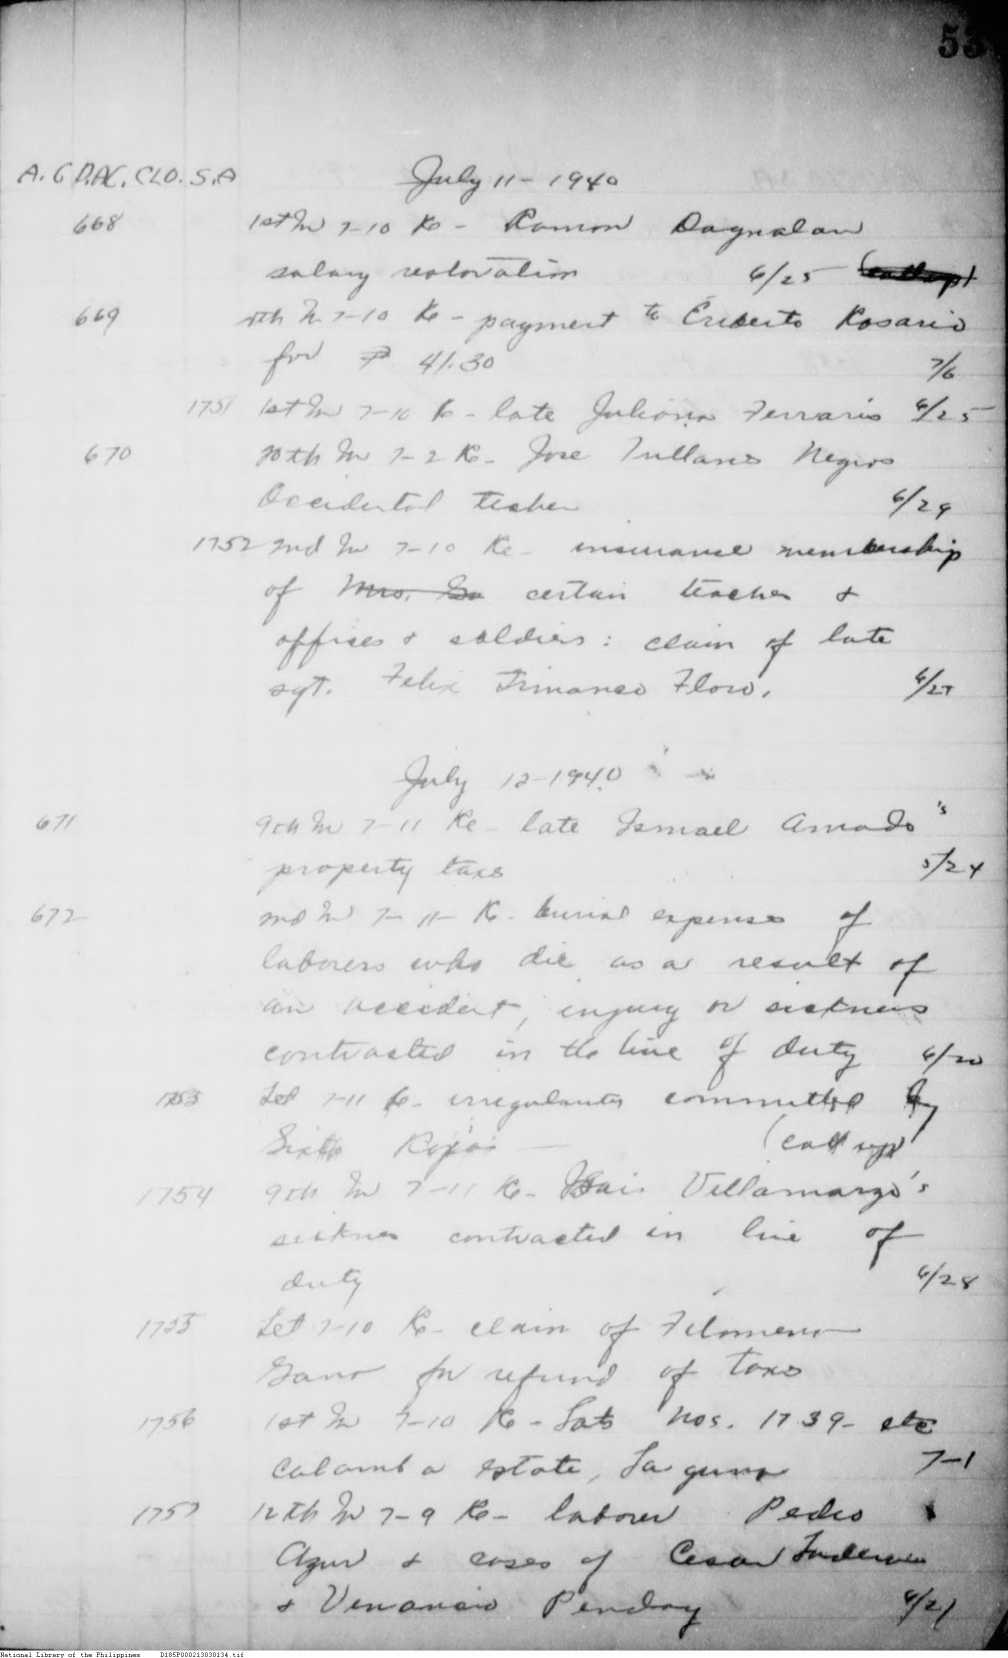 53
A.G D.AC. CLO. S.A July 11 - 1940
668 1st In 7-10 Re - Ramon Dagnalan
salary restoration 6/25
669 4th In 7-10 Re - payment to Eriberto Rosario
for ₱ 41.30 7/6
1751 1st In 7-10 Re - late Juliana Ferraris 6/25
670 10th In 7-2 Re - Jose Negros
Occidental teacher 6/29
1752 2nd In 7-10 Re - insurance membership
of Mrs. certain teacher &
offices & soldiers: claim of late
sgt. Felix Flow. 6/27
July 12-1940
671 9th In 7-11 Re - late Ismael Amado's
property taxs 5/24
672 2nd In 7-11- Re - burial expenses of
laborers who die as a result of
an accident, injury or sickness
contracted in the line of duty 6/20
1753 Let 7-11 Re - irregularities committed by
Sixto Rojas — (call up)
1754 9th In 7-11 Re - Villamarzo's
sicknes contracted in line of
duty 6/28
1755 Let 7-10 Re - claim of Filomeno
Gano for refund of taxs
1756 1st In 7-10 Re - Lots Nos. 1739- etc
Calamba estate, Laguna 7-1
1757 12th In 7-9 Re - laborer Pedro
Azur & cases of Cesar
& Venancio Penday 6/21
National Library of the Philippines D185P000213030134.tif